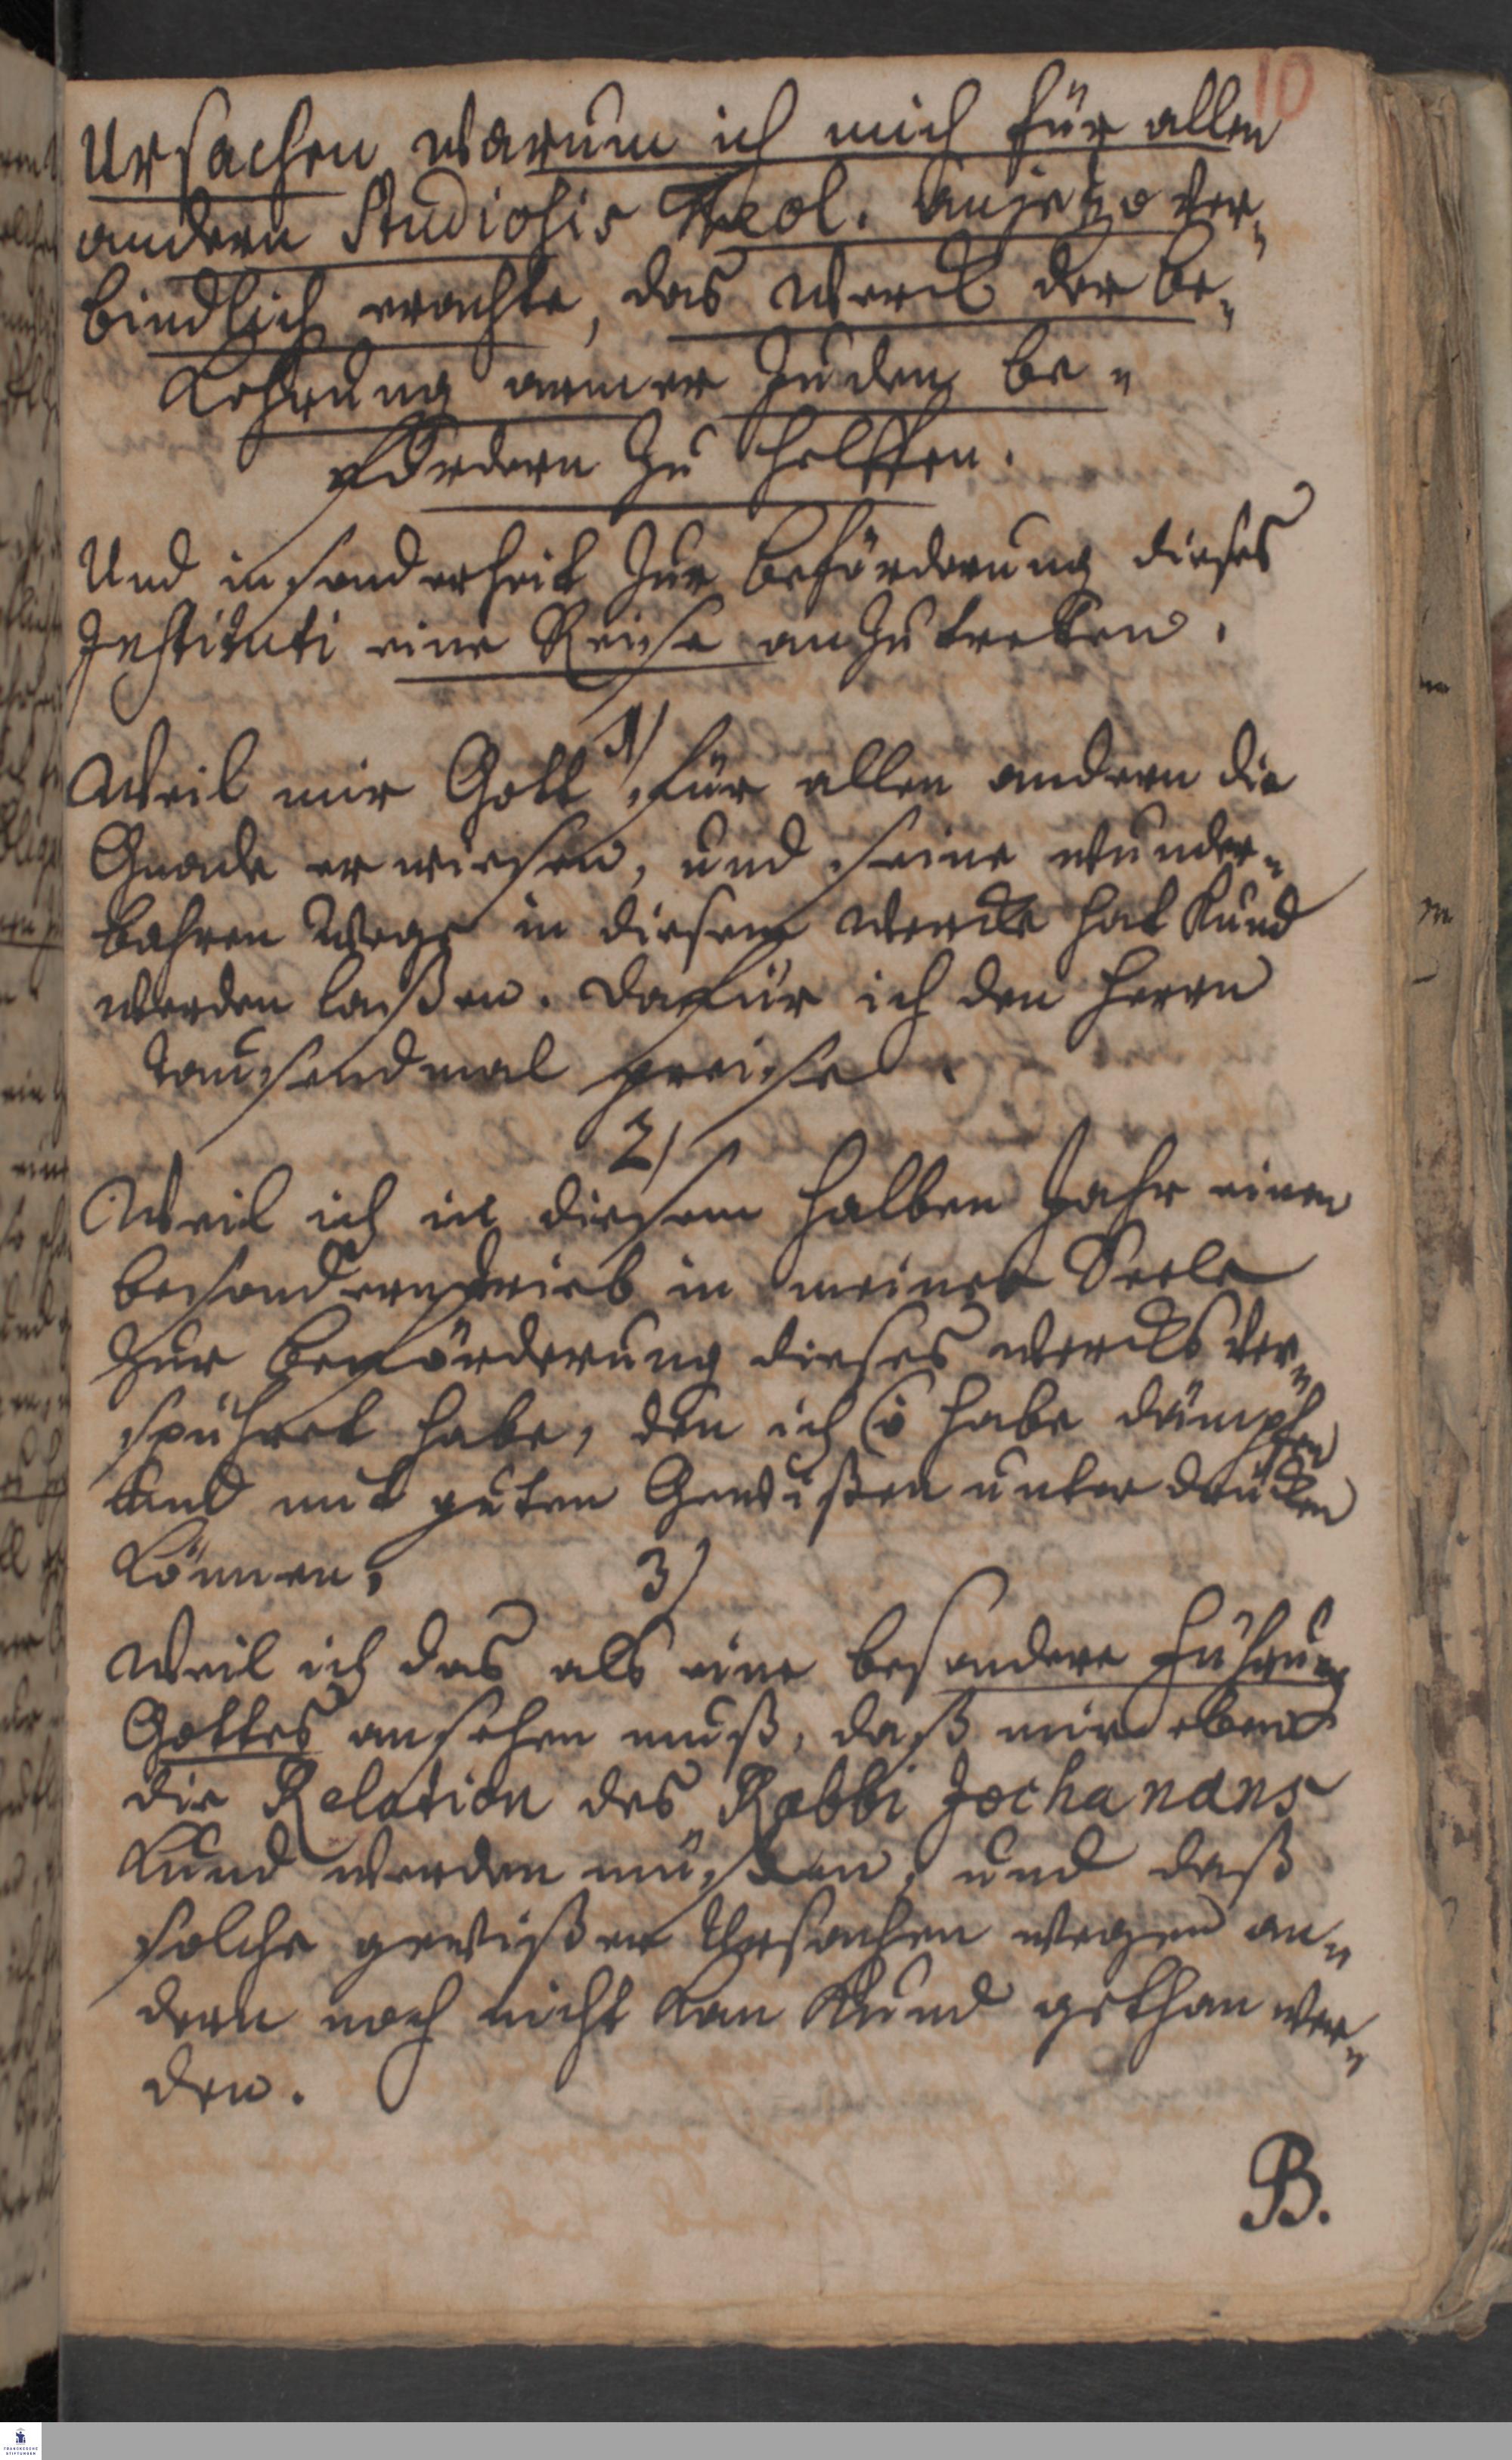 10
Ursachen warum ich mich für allen
andern Studiosis Theol. anjetzo ver„
bindlich erachte, das Werck der Be„
kehrung armer Juden be„
fördern zu helffen.
Und insonderheit zur Beförderung dieses
Instituti eine Reise anzutreten.
1)
Weil mir Gott für allen andern die
Gnade erwiesen, und seine wunder„
bahren Wege in diesem Wercke hat kund
werden laßen. Dafür ich den Herrn
tausendmal preise.
2)
Weil ich in diesem halben Jahr einen
besondern Trieb in meiner Seele
zur Beförderung dieses Wercks ver„
spühret habe, den ich habe dämpfen
und mit guten Gewißen unterdrücken
können.
3)
Weil ich das als eine besondere Führung
Gottes ansehen muß, daß mir eben
die Relation des Rabbi Jochanans
kund werden müßen, und daß
solche gewißer Ursachen wegen an„
dern noch nicht kan kund gethan wer„
den.
B.
FRANCKESCHE
STIFTUNGEN